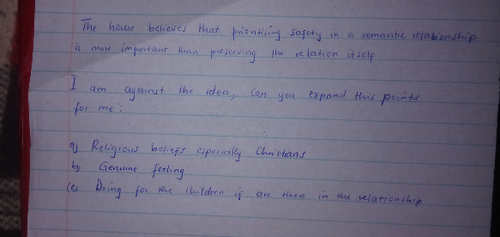 The house believes that prioritising safety in a romantic relationship
is more important than preserving the relation itself
I am against the idea, Can you expand this points
for me:
a) Religious beliefs especially Christians
b) Genuine feeling
(c) Doing for the children if are there in the relationship